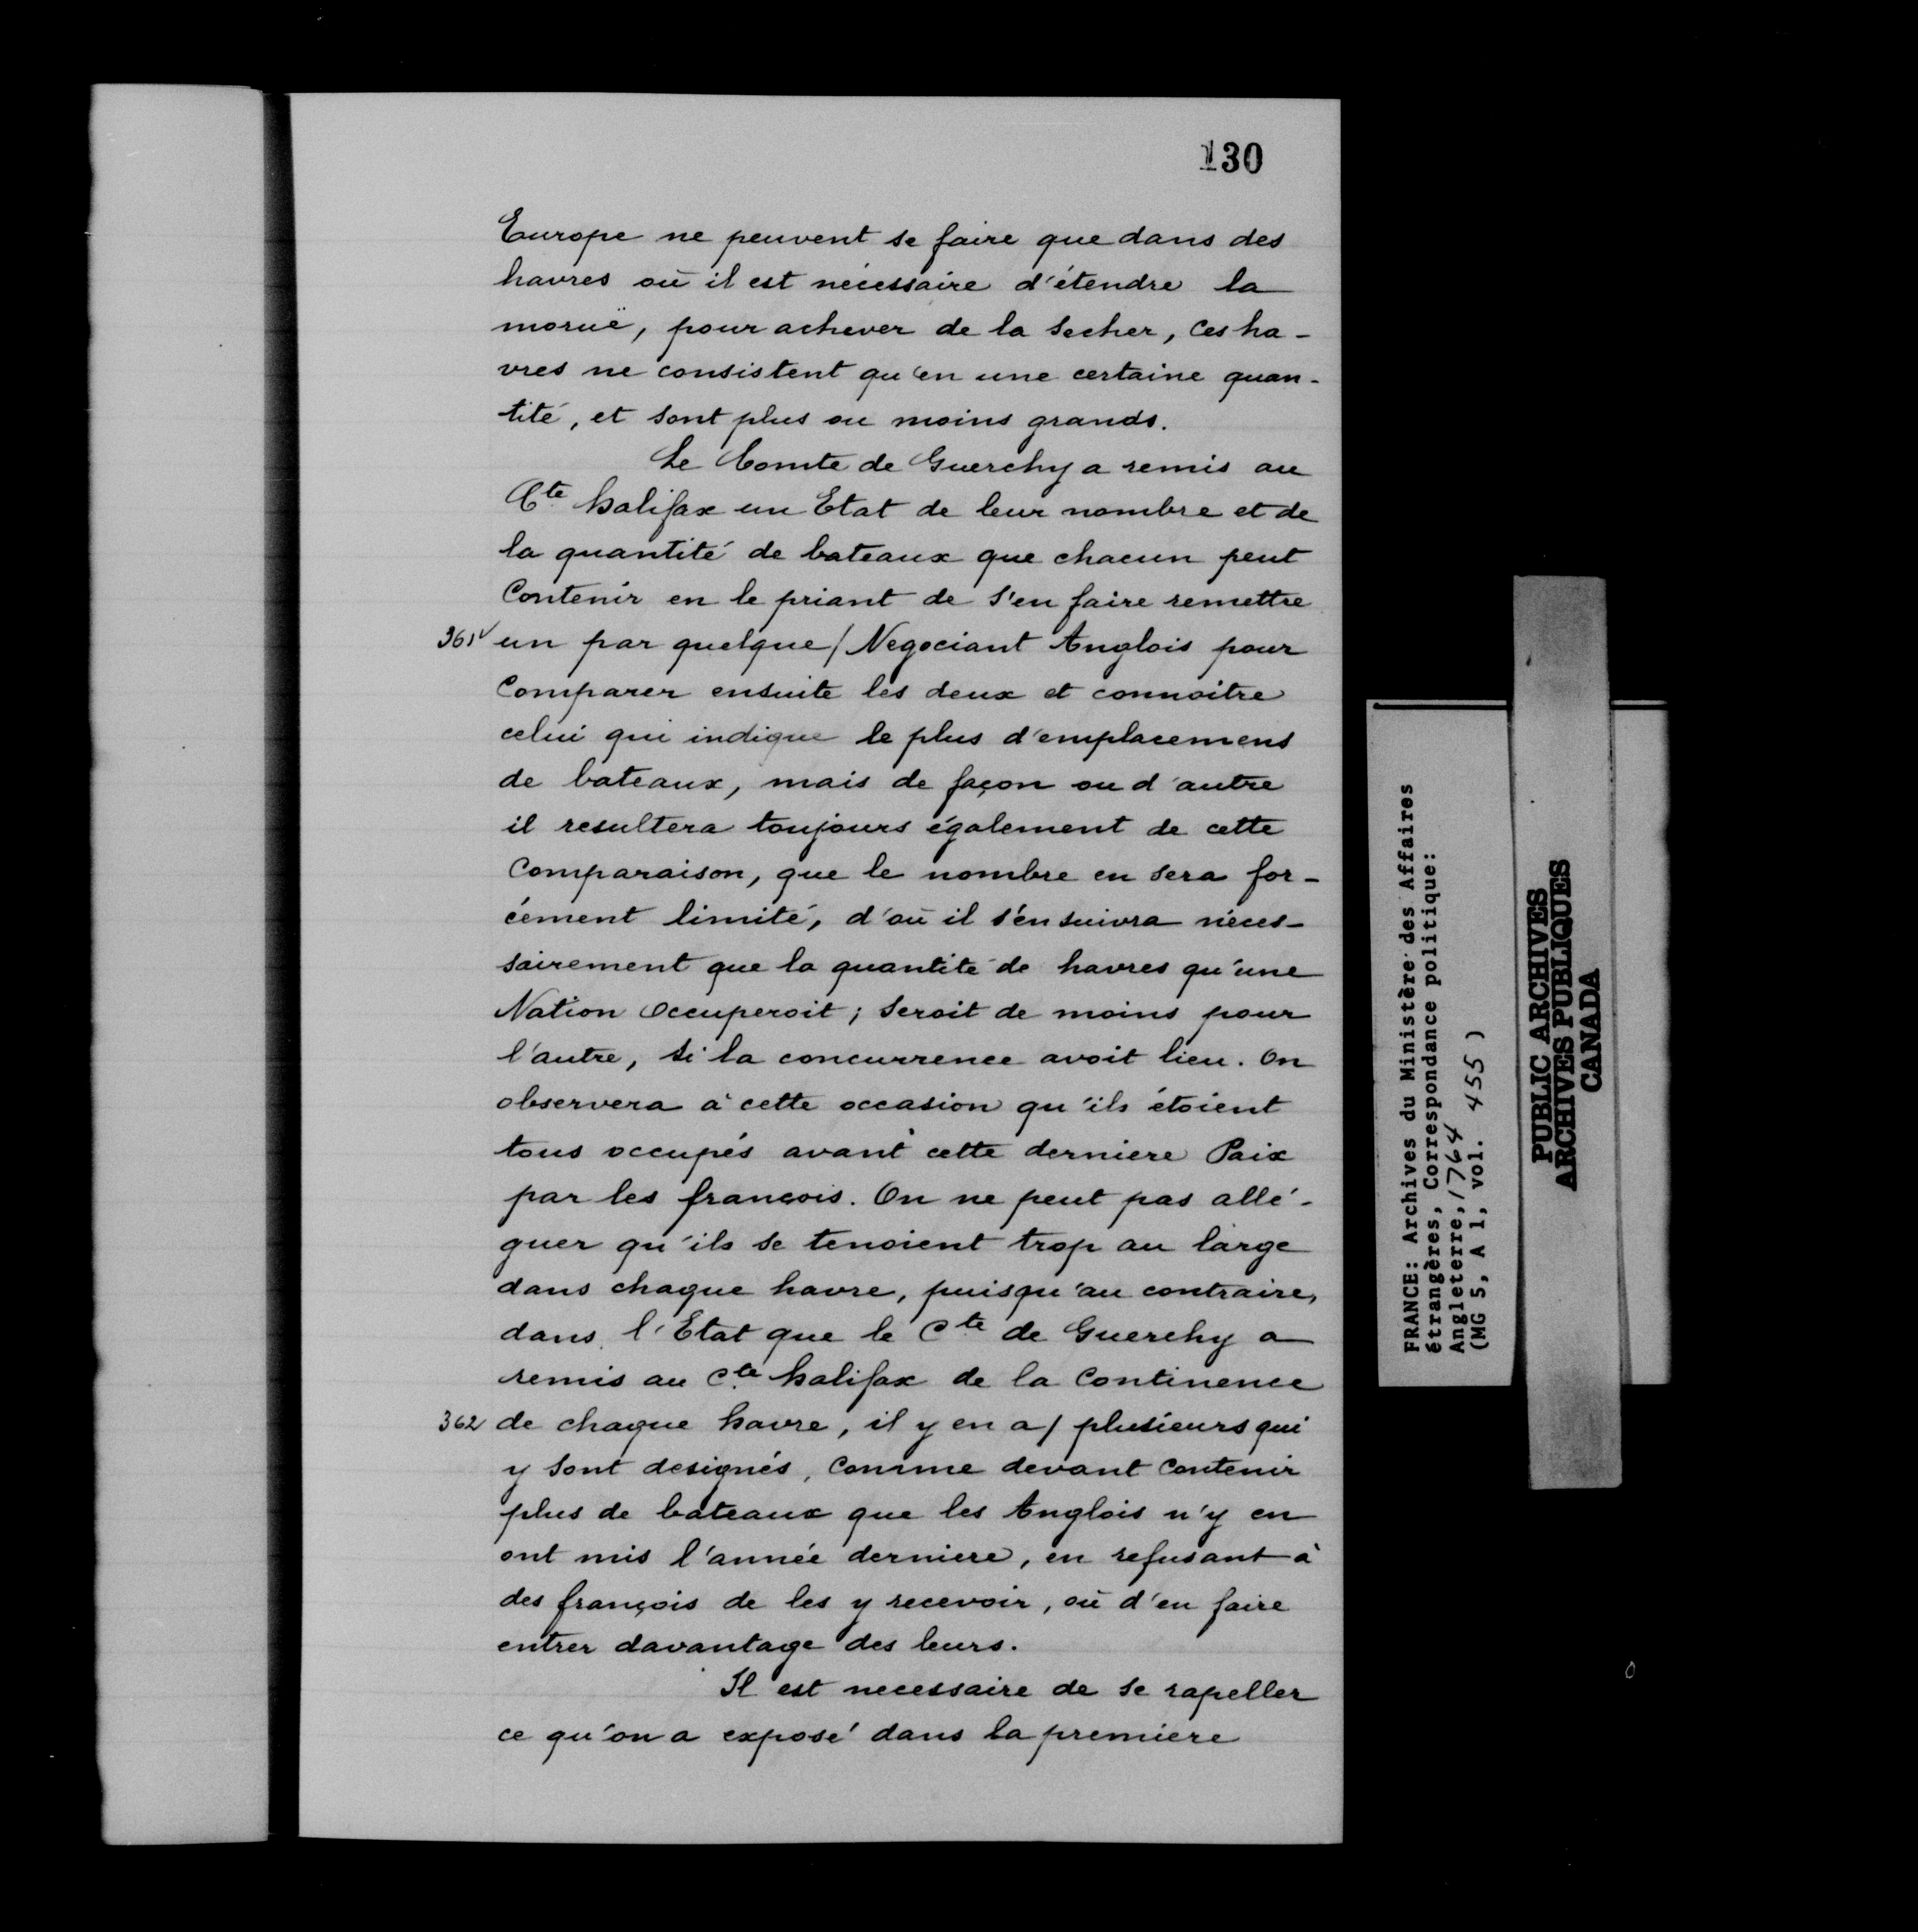 130
Europe ne peuvent se faire que dans des
havres où il est nécessaire d'étendre la
moruë, pour achever de la secher, ces ha-
vres ne consistent qu'en une certaine quan-
tité, et sont plus ou moins grands.
Le Comte de Guerchy a remis au
Cte halifax un Etat de leur nombre et de
la quantité de bateaux que chacun peut
Contenir en le priant de s'en faire remettre
361v un par quelque / Negociant Anglois pour
Comparer ensuite les deux et connoitre
celui qui indique le plus d'emplacemens
de bateaux, mais de façon ou d'autre
il resultera toujours également de cette
Comparaison, que le nombre en sera for-
cément limité, d'où il s'en suivra néces-
sairement que la quantité de havres qu'une
Nation Occuperoit; seroit de moins pour
l'autre, si la concurrence avoit lieu. On
observera à cette occasion qu'ils étoient
tous occupés avant cette derniere Paix
par les françois. On ne peut pas allé-
guer qu'ils se tenoient trop au large
dans chaque havre, puisqu'au contraire,
dans l'Etat que le Cte de Guerchy a
remis au Cte halifax de la Continence
362 de chaque havre, il y en a / plusieurs qui
y sont designés, Comme devant Contenir
plus de bateaux que les Anglois n'y en
ont mis l'année derniere, en refusant à
des françois de les y recevoir, où d'en faire
entrer davantage des leurs.
Il est necessaire de se rapeller
ce qu'on a exposé dans la premiere
FRANCE: Archives du Ministère des Affaires
étrangères, Correspondance politique:
Angleterre, 1764
(MG 5, A 1, vol. 455)
PUBLIC ARCHIVES
ARCHIVES PUBLIQUES
CANADA